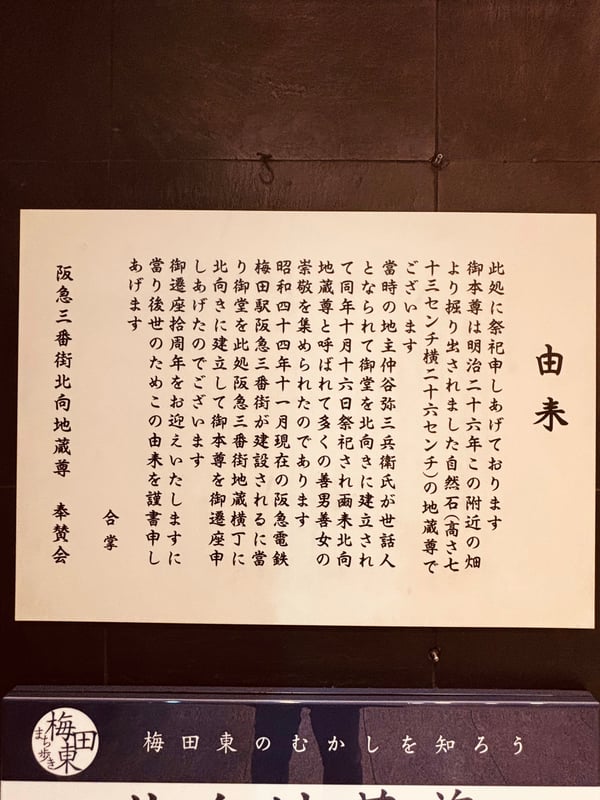 由来
此処に祭祀申しあげております
御本尊は明治二十六年この附近の畑
より掘り出されました自然石(高さ七
十三センチ横二十六センチ)の地蔵尊で
ございます
當時の地主仲谷弥三兵衛氏が世話人
となられて御堂を北向きに建立され
て同年十月十六日祭祀され画来北向
地蔵尊と呼ばれて多くの善男善女の
崇敬を集められたのであります
昭和四十四年十一月現在の阪急電鉄
梅田駅阪急三番街が建設されるに當
り御堂を此処阪急三番街地蔵横丁に
北向きに建立して御本尊を御遷座申
しあげたのでございます
御遷座拾周年をお迎えいたしますに
當り後世のためこの由来を謹書申し
あげます
合掌
阪急三番街北向地蔵尊 奉賛会
梅田東
まち歩き
梅田東のむかしを知ろう